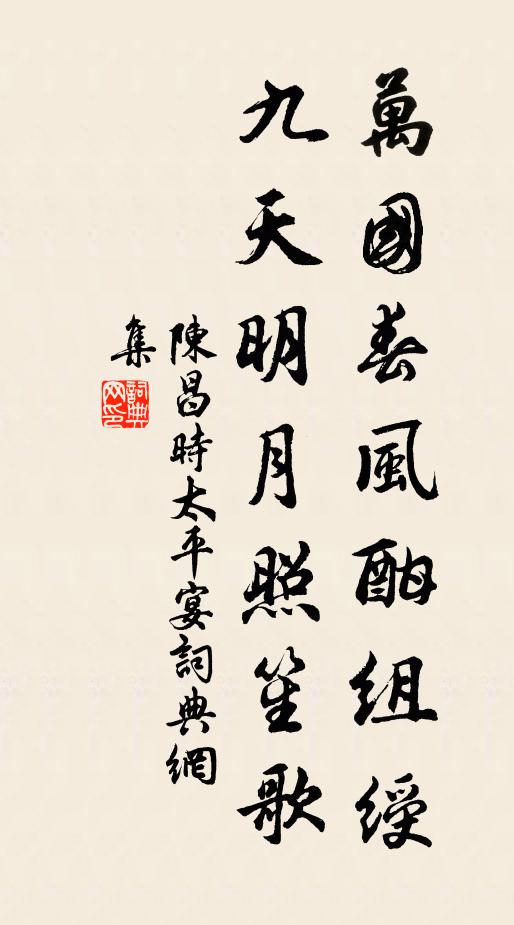 萬國春風酣組綬
九天明月照笙歌
陳昌時太平宴詞典網
集
詞典網印